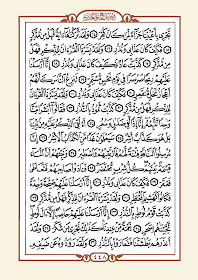 تجري بأعيننا جزاء لمن كان كفر ولقد تركناها آية فهل من مدكر
فكيف كان عذابي ونذر ولقد يسرنا القرآن للذكر فهل
من مدكر كذبت عاد فكيف كان عذابي ونذر إنا أرسلنا
عليهم ريحا صرصرا في يوم نحس مستمر تنزع الناس كأنهم
أعجاز نخل منقعر فكيف كان عذابي ونذر ولقد يسرنا القرآن
للذكر فهل من مدكر كذبت ثمود بالنذر فقالوا أبشرا منا
واحدا نتبعه إنا إذا لفي ضلال وسعر أألقي الذكر عليه من بيننا
بل هو كذاب أشر سيعلمون غدا من الكذاب الأشر إنا
مرسلو الناقة فتنة لهم فارتقبهم واصطبر ونبئهم أن الماء
قسمة بينهم كل شرب محتضر فنادوا صاحبهم فتعاطى
فعقر فكيف كان عذابي ونذر إنا أرسلنا عليهم صيحة واحدة
فكانوا كهشيم المحتظر ولقد يسرنا القرآن للذكر فهل من مدكر
كذبت قوم لوط بالنذر إنا أرسلنا عليهم حاصبا إلا آل لوط
نجيناهم بسحر نعمة من عندنا كذلك نجزي من شكر ولقد
أنذرهم بطشتنا فتماروا بالنذر ولقد راودوه عن ضيفه
٤٤٨